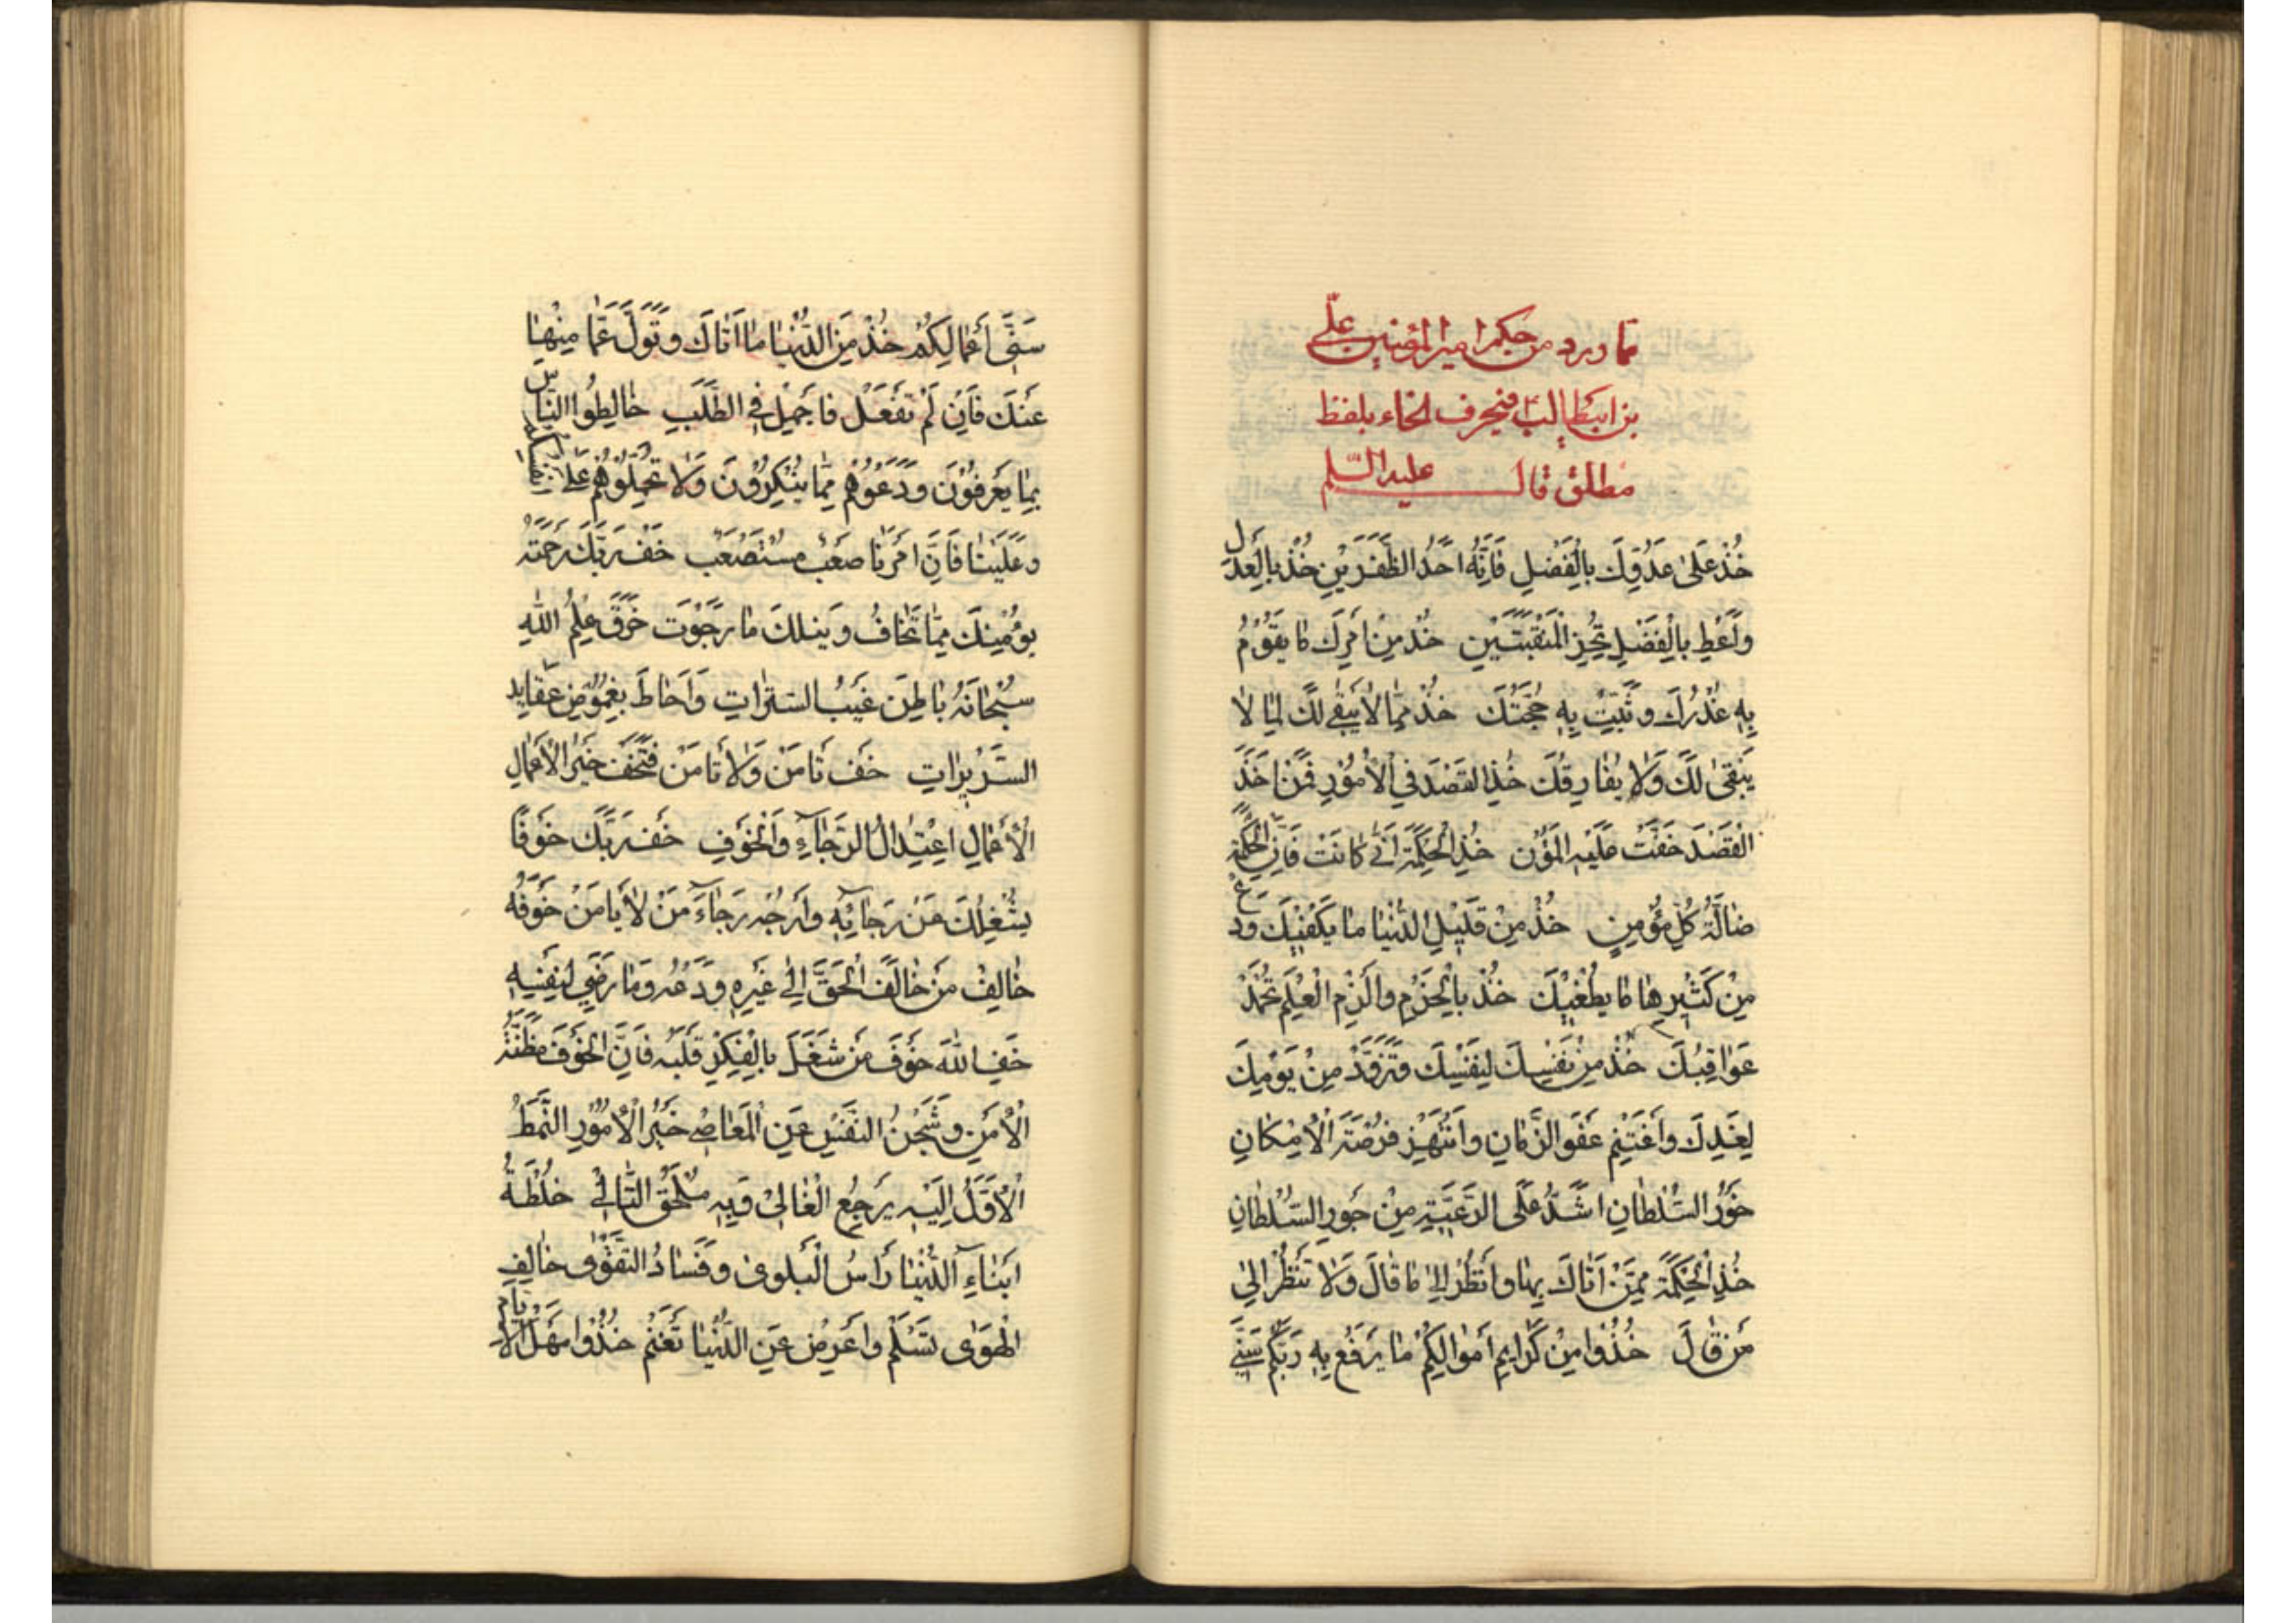 مما ورد من حكم امير المؤمنين علي
بن ابيطالب في حرف الخاء بلفظ
مطلق قال عليه السلم
خُذْ عَلىٰ عَدُوِّكَ بِالْفَضْلِ فَاِنَّهُ اَحَدُ الظَّفَرَيْنِ خُذْ بِالْعَدْلِ
وَاَعْطِ بِالْفَضْلِ تَحُزِ الْمَنْقَبَتَيْنِ خُذْ مِنْ اَمْرِكَ مٰا يَقُوْمُ
بِهِ عُذْرُكَ وَ تَثْبُتُ بِهِ حُجَّتُكَ خُذْ مِمّٰا لاٰ يَبْقٰى لَكَ لِمٰا لاٰ
يَبْقىٰ لَكَ وَلاٰ يُفٰارِقُكَ خُذِ القَصْدَ فِي الْاُمُوْرِ فَمَنْ اَخَذَ
الْقَصْدَ خَفَّتْ عَلَيْهِ الْمُؤَنُ خُذِ الْحِكْمَةَ اَنّٰى كٰانَتْ فَاِنَّ الْحِكْمَةَ
ضٰالَّةُ كُلِّ مُؤْمِنٍ خُذْ مِنْ قَلِيْلِ الدُّنْيٰا مٰا يَكْفِيْكَ وَدَعْ
مِنْ كَثِيْرِهٰا مٰا يُطْغِيْكَ خُذْ بِالْحَزْمِ وَالْزَمِ الْعِلْمَ تُحْمَدْ
عَوٰاقِبُكَ خُذْ مِنْ نَفْسِكَ لِنَفْسِكَ وَتَزَوَّدْ مِنْ يَوْمِكَ
لِغَدِكَ وَاغْتَنِمْ عَفْوَ الزَّمٰانِ وَانْتَهِزْ فُرْصَةَ الْاِمْكٰانِ
خَوْرُ السُّلْطٰانِ اَشَدُّ عَلَى الرَّعِيَّةِ مِنْ جَوْرِ السُّلْطٰانِ
خُذِ الْحِكْمَةَ مِمَّنْ اَتٰاكَ بِهٰا وَانْظُرْ اِلىٰ مٰا قٰالَ وَلاٰ تَنْظُرْ اِلىٰ
مَنْ قٰالَ خُذُوْا مِنْ كَرٰايِمِ اَمْوٰالِكُمْ مٰا يَرْفَعُ بِهِ رَبُّكُمْ سَنِيَّ
سَنِيَّ اَعْمٰالِكُمْ خُذْ مِنَ الدُّنْيٰا مٰا اَتٰاكَ وَتَوَلَّ عَمّٰا مِنْهٰا
عَنْكَ فَاِنْ لَمْ تَفْعَلْ فَاَجْمِلْ فِي الطَّلَبِ خٰالِطُوا النّٰاسَ
بِمٰا يَعْرِفُوْنَ وَدَعُوْهُمْ مِمّٰا يُنْكِرُوْنَ وَلاٰ تُحَمِّلُوْهُمْ عَلىٰ اَنْفُسِكُمْ
وَعَلَيْنٰا فَاِنَّ اَمْرَنٰا صَعْبٌ مُسْتَصْعَبٌ خَفْ رَبَّكَ رَحْمَتَهُ
يُؤْمِنْكَ مِمّٰا تَخٰافُ وَيُنِلْكَ مٰا رَجَوْتَ خَرَقَ عِلْمُ اللّٰهِ
سُبْحٰانَهُ بٰاطِنَ غَيْبِ السُّتَرٰاتِ وَاَحٰاطَ بِغُمُوْضِ عَقٰايِدِ
السَّرِيْرٰاتِ خَفْ تَاْمَنْ وَلاٰ تَاْمَنْ فَتَخَفْ خَيْرُ الْاَعْمٰالِ
الْاَعْمٰالِ اِعْتِدٰالُ الرَّجٰاءِ وَالْخَوْفِ خَفْ رَبَّكَ خَوْفًا
يَشْغَلُكَ عَنْ رَجٰائِهِ وَارْجُهُ رَجٰاءَ مَنْ لاٰ يَاْمَنُ خَوْفَهُ
خٰالِفْ مَنْ خٰالَفَ الْحَقَّ اِلىٰ غَيْرِهِ وَدَعْهُ وَمٰا رَضِيَ لِنَفْسِهِ
خَفِ اللّٰهَ خَوْفَ مَنْ شَغَلَ بِالْفِكْرِ قَلْبَهُ فَاِنَّ الْخَوْفَ مَظَنَّةُ
الْاَمْنِ وَسِجْنُ النَّفْسِ عَنِ الْمَعٰاصِي خَيْرُ الْاُمُوْرِ النَّمَطُ
الْاَوَّلُ اِلَيْهِ يَرْجِعُ الْغٰالِيْ وَبِهِ يَلْحَقُ التّٰالِيْ خُلْطَةُ
اَبْنٰاءِ الدُّنْيٰا رَاْسُ الْبَلْوىٰ وَفَسٰادُ التَّقْوىٰ خٰالِفِ
الْهَوٰى تَسْلَمْ وَاَعْرِضْ عَنِ الدُّنْيٰا تَغْنَمْ خُذُوْا مَهَلَ الْاَيّٰامِ